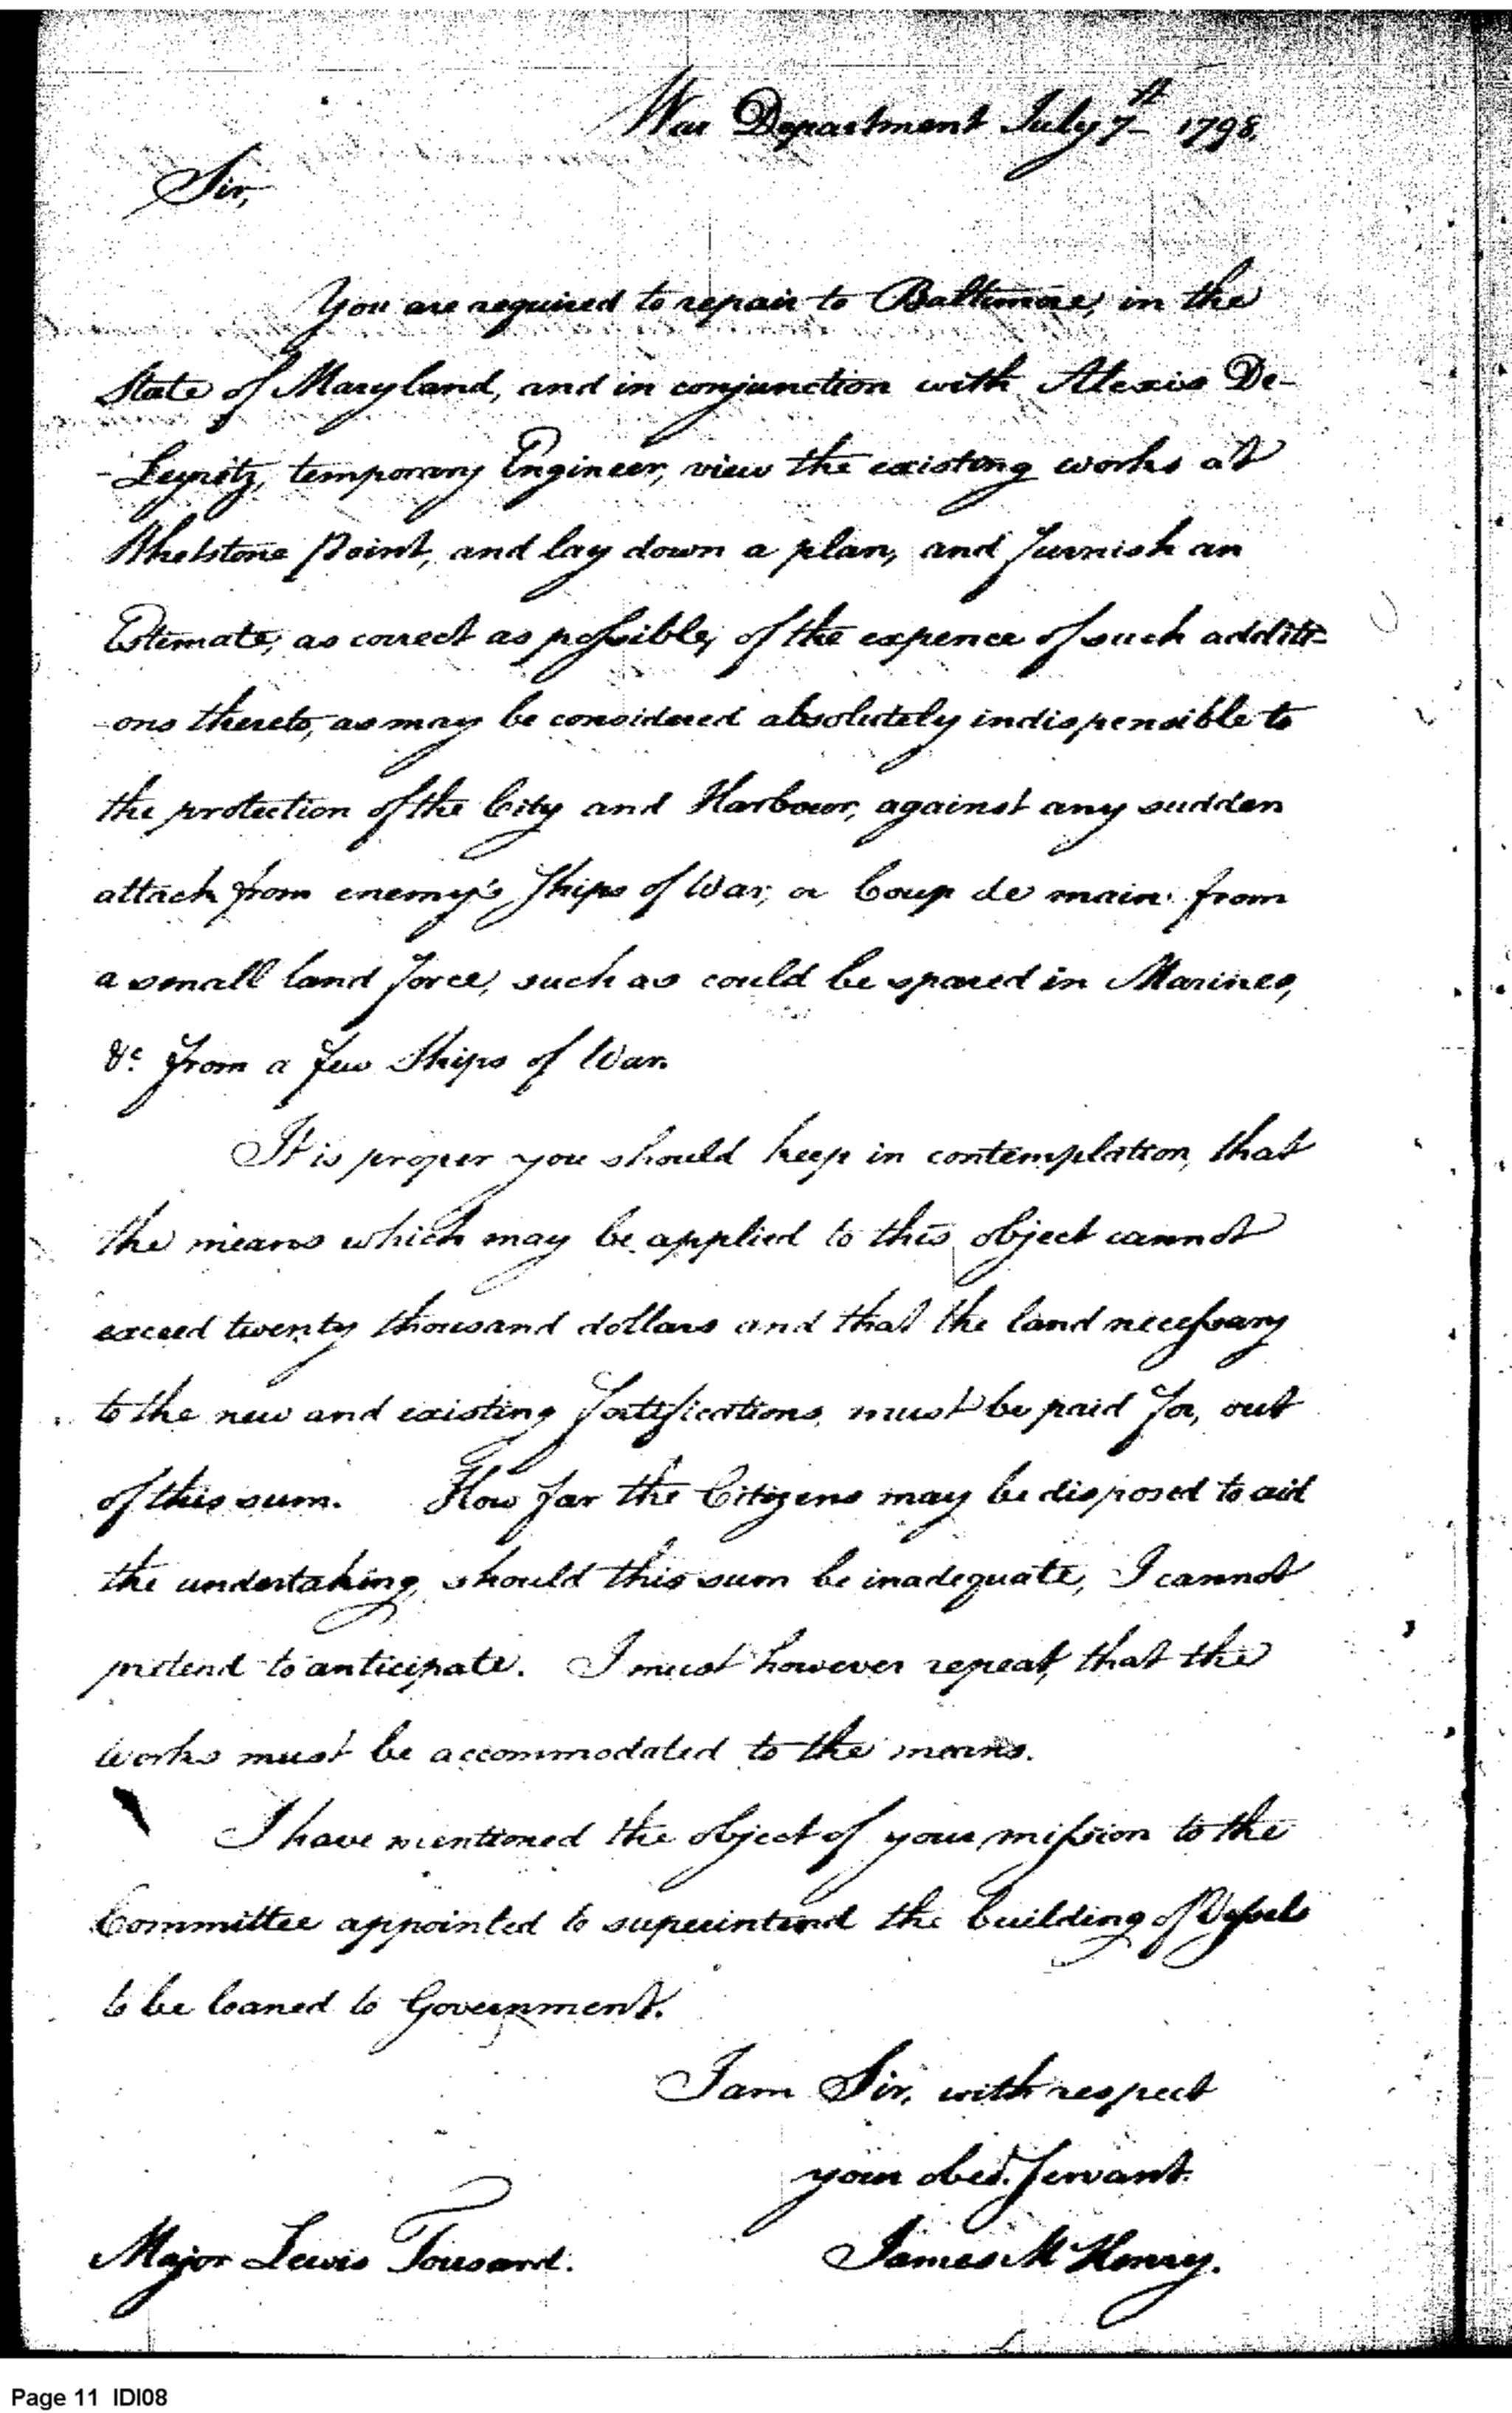 War Department July 7th 1798.
Sir,
You are required to repair to Baltimore, in the
State of Maryland, and in conjunction with Alexis De-
-Leyritz, temporary Engineer, view the existing works at
Whetstone Point, and lay down a plan, and furnish an
Estimate, as correct as possible, of the expence of such additi-
-ons thereto, as may be considered absolutely indispensible to
the protection of the City and Harbour, against any sudden
attack from enemy's Ships of War, or Coup de main from
a small land force, such as could be spared in Marines,
&c from a few Ships of War.
It is proper you should keep in contemplation, that
the means which may be applied to this object cannot
exceed twenty thousand dollars and that the land necessary
to the new and existing fortifications, must be paid for, out
of this sum. How far the Citizens may be disposed to aid
the undertaking, should this sum be inadequate, I cannot
pretend to anticipate. I must however repeat, that the
works must be accommodated to the means.
I have mentioned the object of your mission to the
Committee appointed to superintend the building of Vessels
to be loaned to Government.
I am Sir, with respect
your obed. Servant.
James McHenry.
Major Lewis Tousard.
Page 11 IDI08